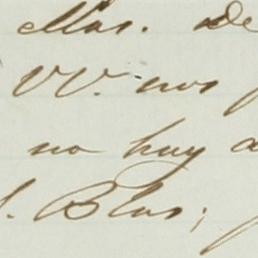 ellas. De
VV. nos
no hay
S. Blas;